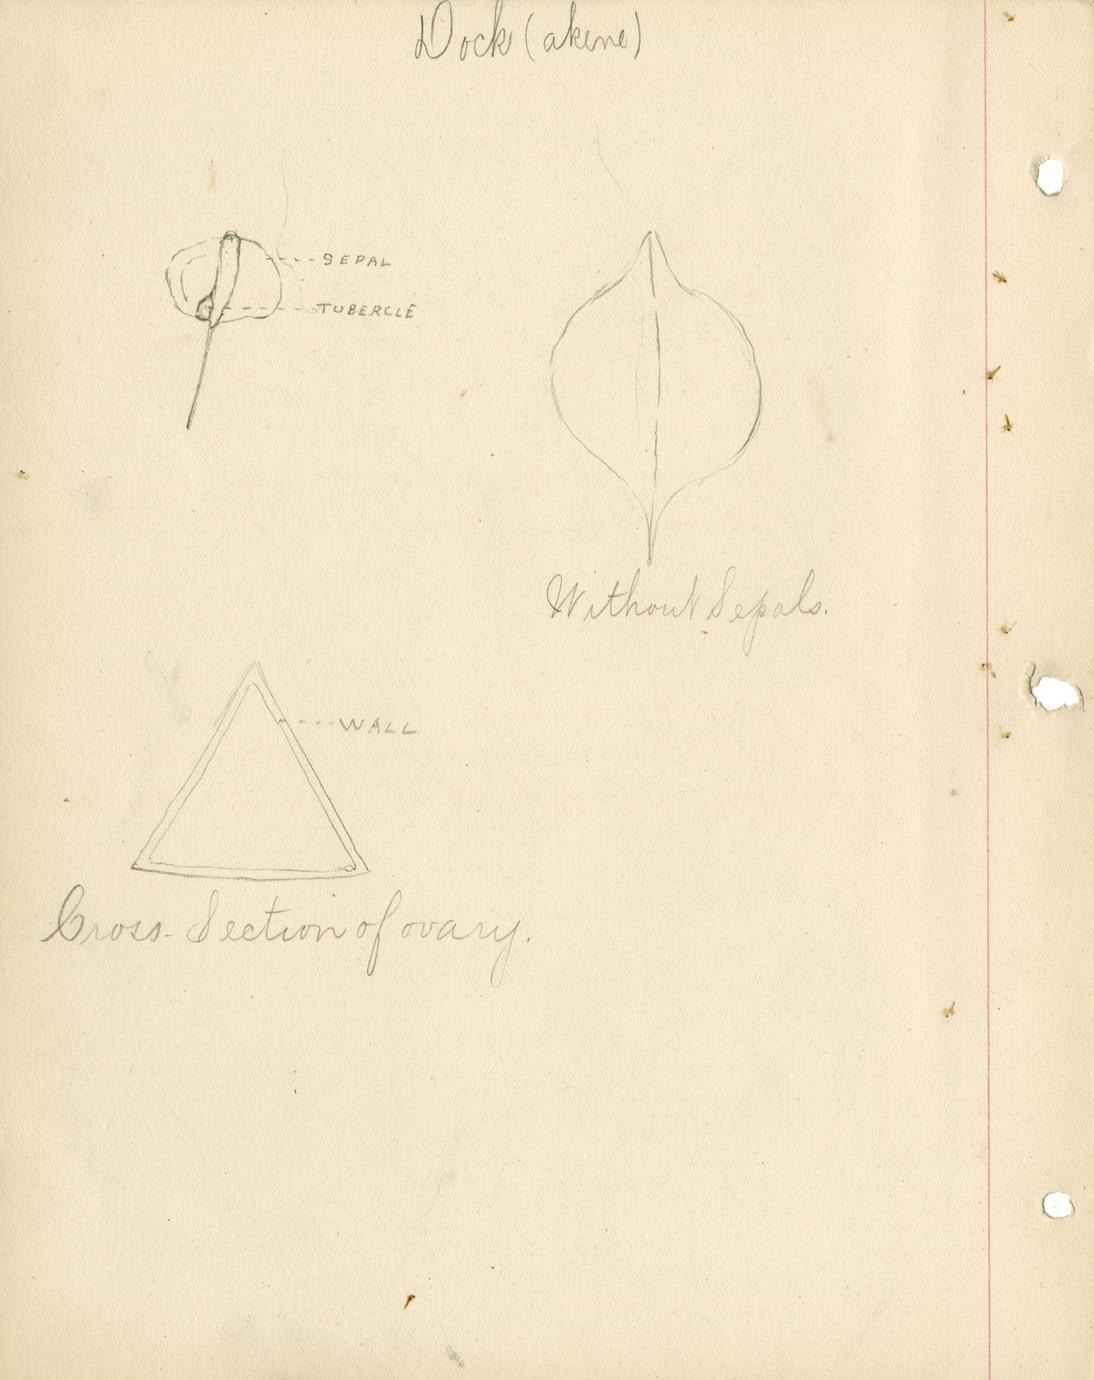 Dock (akene)
SEPAL
TUBERCLE
Without Sepals.
WALL
Cross-Section of ovary.